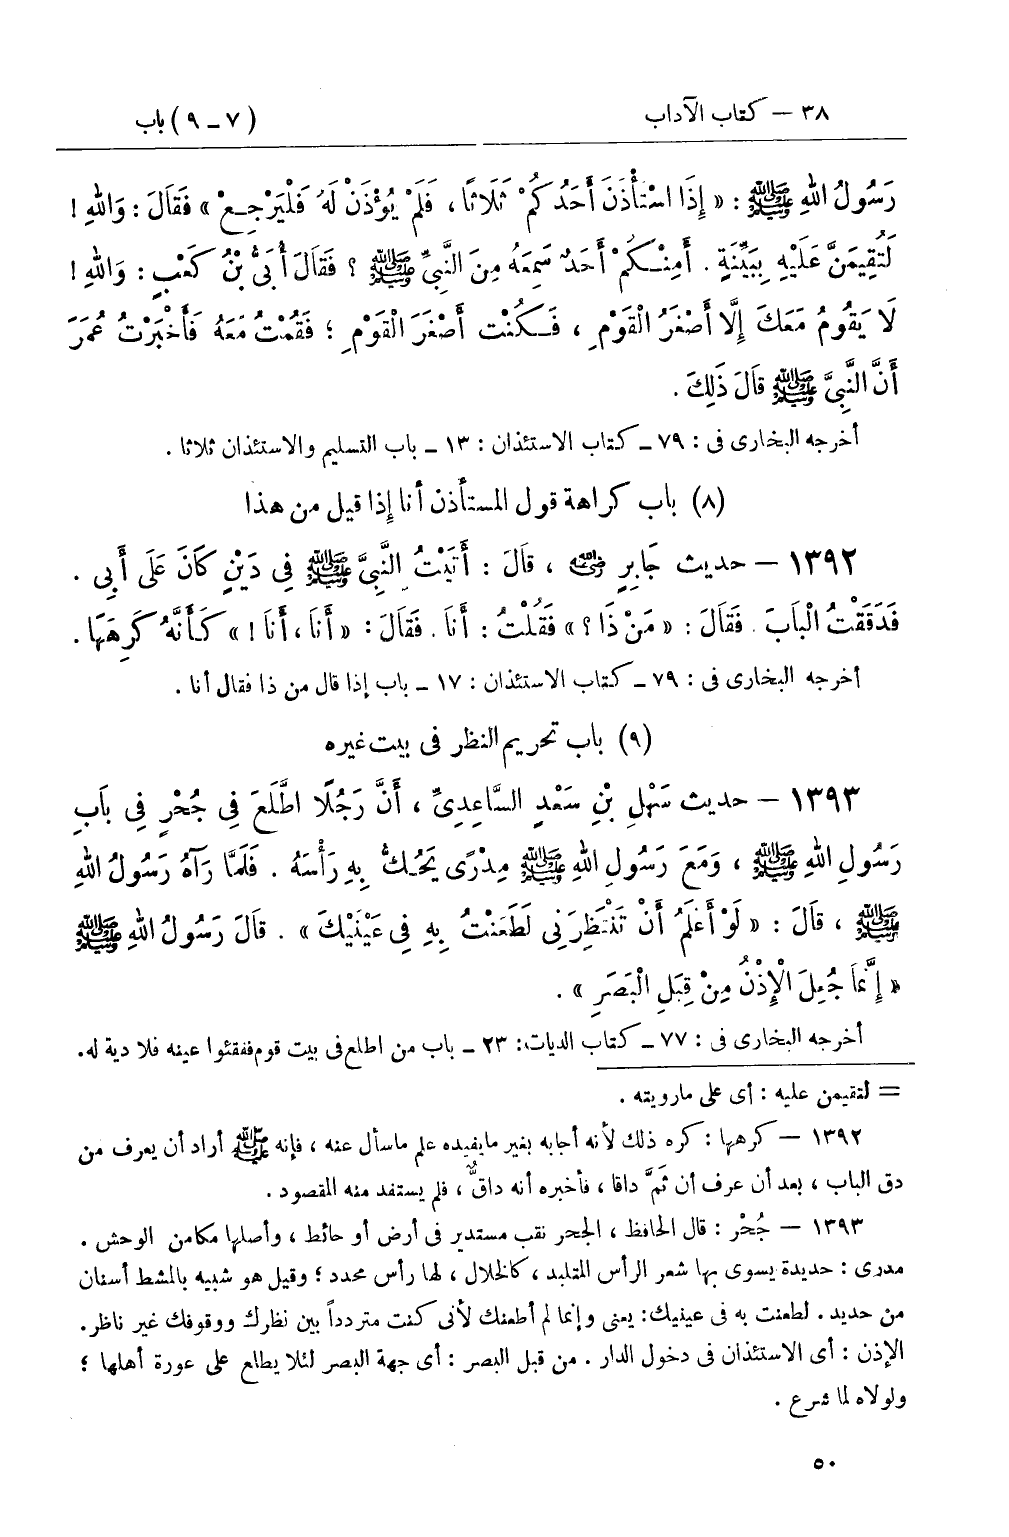 ٣٨ — كتاب الآداب
(٧ – ٩) باب
رَسُولُ اللهِ ﷺ : « إِذَا اسْتَأْذَنَ أَحَدُكُمْ ثَلَاثًا ، فَلَمْ يُؤْذَنْ لَهُ فَلْيَرْجِعْ » فَقَالَ : وَاللهِ !
لَتُقِيمَنَّ عَلَيْهِ بِبَيِّنَةٍ . أَمِنْكُمْ أَحَدٌ سَمِعَهُ مِنَ النَّبِيِّ ﷺ ؟ فَقَالَ أُبَيُّ بْنُ كَعْبٍ : وَاللهِ !
لَا يَقُومُ مَعَكَ إِلَّا أَصْغَرُ الْقَوْمِ ، فَكُنْت أَصْغَرَ الْقَوْمِ ؛ فَقُمْتُ مَعَهُ فَأَخْبَرْتُ عُمَرَ
أَنَّ النَّبِيَّ ﷺ قَالَ ذَلِكَ .
أخرجه البخارى فى : ٧٩ – كتاب الاستئذان : ١٣ – باب التسليم والاستئذان ثلاثا .
(٨) باب كراهة قول المستأذن أنا إذا قيل من هذا
١٣٩٢ — حديث جَابِرٍ رضي الله عنه ، قَالَ : أَتَيْتُ النَّبِيَّ ﷺ فِى دَيْنٍ كَانَ عَلَى أَبِى .
فَدَقَقْتُ الْبَابَ . فَقَالَ : « مَنْ ذَا ؟ » فَقُلْتُ : أَنَا . فَقَالَ : « أَنَا ، أَنَا ! » كَأَنَّهُ كَرِهَهَا .
أخرجه البخارى فى : ٧٩ – كتاب الاستئذان : ١٧ – باب إذا قال من ذا فقال أنا .
(٩) باب تحريم النظر فى بيت غيره
١٣٩٣ — حديث سَهْلِ بْنِ سَعْدٍ السَّاعِدِىِّ ، أَنَّ رَجُلًا اطَّلَعَ فِى جُحْرٍ فِى بَابِ
رَسُولِ اللهِ ﷺ ، وَمَعَ رَسُولِ اللهِ ﷺ مِدْرًى يَحُكُّ بِهِ رَأْسَهُ . فَلَمَّا رَآهُ رَسُولُ اللهِ
ﷺ ، قَالَ : « لَوْ أَعْلَمُ أَنْ تَنْتَظِرَنِى لَطَعَنْتُ بِهِ فِى عَيْنَيْكَ » . قَالَ رَسُولُ اللهِ ﷺ
« إِنَّمَا جُعِلَ الْإِذْنُ مِنْ قِبَلِ الْبَصَرِ » .
أخرجه البخارى فى : ٧٧ – كتاب الديات: ٢٣ – باب من اطلع فى بيت قوم ففقئوا عينه فلا دية له.
= لتقيمن عليه : أى على مارويته .
١٣٩٢ — كرهها : كره ذلك لأنه أجابه بغير مايفيده علم ماسأل عنه ، فإنه ﷺ أراد أن يعرف من
دق الباب ، بعد أن عرف أن ثَمَّ داقا ، فأخبره أنه داقٌّ ، فلم يستفد منه المقصود .
١٣٩٣ — جُحْر : قال الحافظ ، الجحر نقب مستدير فى أرض أو حائط ، وأصلها مكامن الوحش .
مدرى : حديدة يسوى بها شعر الرأس المتلبد ، كالخلال ، لها رأس محدد ؛ وقيل هو شبيه بالمشط أسنان
من حديد . لطعنت به فى عينيك: يعنى وإنما لم أطعنك لأنى كنت متردداً بين نظرك ووقوفك غير ناظر.
الإذن : أى الاستئذان فى دخول الدار . من قبل البصر : أى جهة البصر لئلا يطلع على عورة أهلها ؛
ولولاه لما شرع .
٥٠